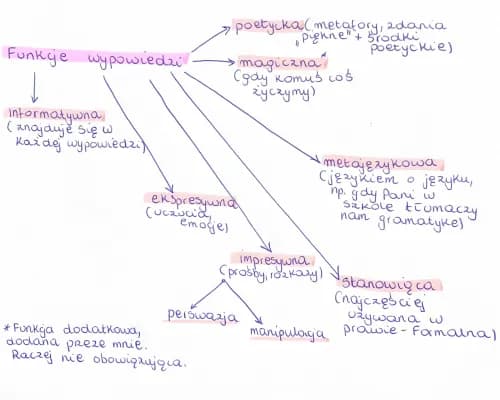 Funkcje wypowiedzi
poetycka (metafory, zdania
„piękne" + środki
poetyckie)
magiczna*
(gdy komuś coś
życzymy)
informatywna
(znajduje się w
każdej wypowiedzi)
metajęzykowa
(językiem o języku,
np. gdy Pani w
szkole tłumaczy
nam gramatykę)
ekspresywna
(uczucia,
emocje)
impresywna
(prośby, rozkazy)
perswazja
manipulacja
stanowiąca
(najczęściej
używana w
prawie - formalna)
* Funkcja dodatkowa,
dodana przeze mnie.
Raczej nie obowiązująca.